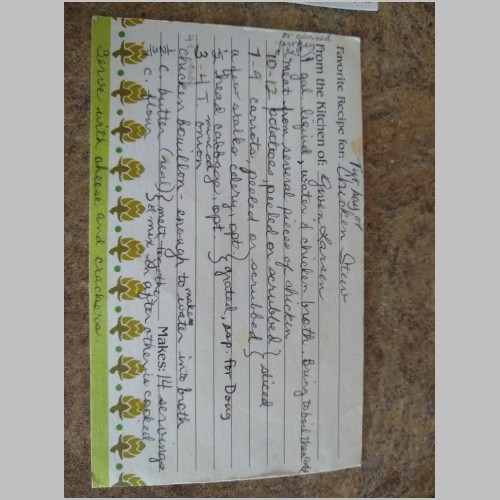 Favorite Recipe for: Chicken Stew
From the Kitchen of: Gwen Larsen
1 gal. liquid, water & chicken broth. Bring to boil then add
meat from several pieces of chicken
10-12 potatoes, peeled or scrubbed } sliced
7-9 carrots, peeled or scrubbed }
a few stalks celery, opt. } grated, esp. for Doug
head cabbage, opt. }
3-4 T. minced onion
chicken bouillon - enough to make water into broth
Makes: 14 servings
1/2 c. butter (real) } melt together
1/2 c. flour } & mix in after other is cooked
Serve with cheese and crackers.